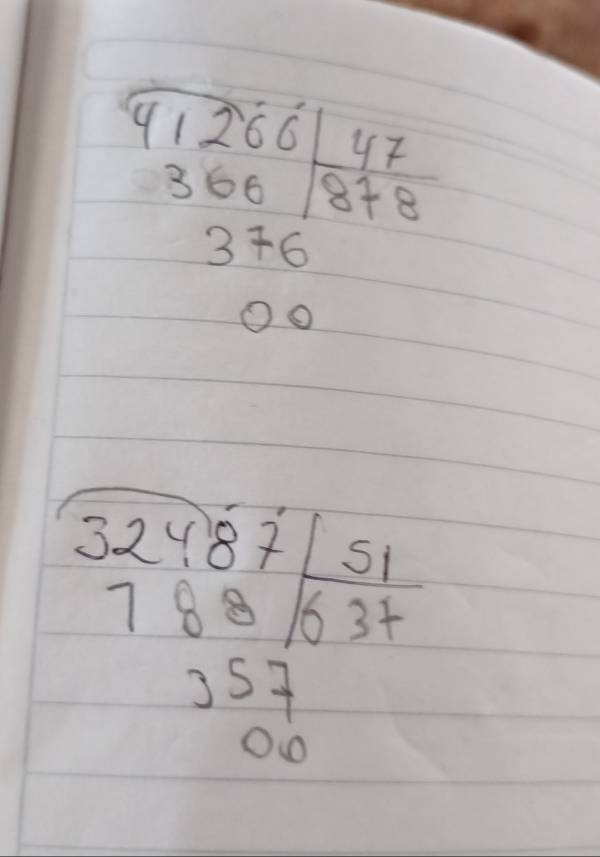 41266 47
366 878
376
00
32487 51
188 637
357
00